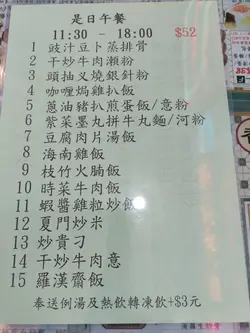 是日午餐
11:30 - 18:00 $52
1 豉汁豆卜蒸排骨
2 干炒牛肉瀨粉
3 頭抽叉燒銀針粉
4 咖喱焗雞扒飯
5 蔥油豬扒煎蛋飯/意粉
6 紫菜墨丸拼牛丸麵/河粉
7 豆腐肉片湯飯
8 海南雞飯
9 枝竹火腩飯
10 時菜牛肉飯
11 蝦醬雞粒炒飯
12 夏門炒米
13 炒貴刁
14 干炒牛肉意
15 羅漢齋飯
奉送例湯及熱飲轉凍飲+$3元